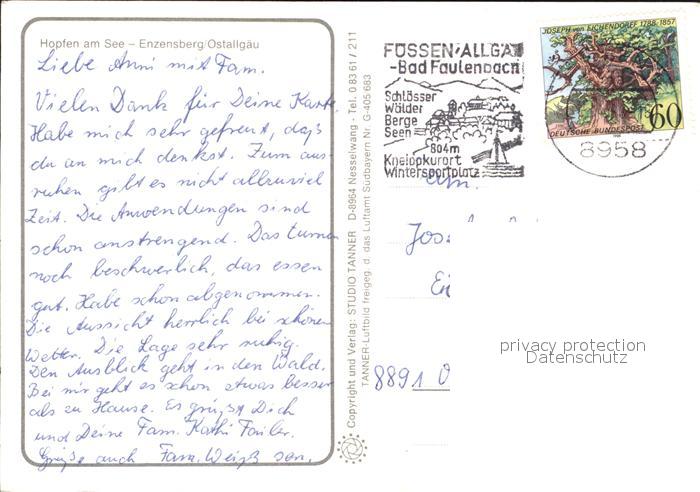 Hopfen am See – Enzensberg/Ostallgäu
Liebe Anni mit Fam.
Vielen Dank für Deine Karte.
Habe mich sehr gefreut, daß
du an mich denkst. Zum aus-
ruhen gibt es nicht allzuviel
Zeit. Die Anwendungen sind
schon anstrengend. Das turnen
noch beschwerlich, das essen
gut. Habe schon abgenommen.
Die Aussicht herrlich bei schönem
Wetter. Die Lage sehr ruhig.
Den Ausblick geht in den Wald.
Bei mir geht es schon etwas besser
als zu Hause. Es grüßt Dich
und Deine Fam. Kathi
Grüße auch Fam. Weiß sen.
Copyright und Verlag: STUDIO TANNER D-8964 Nesselwang - Tel. 0 83 61 / 211
TANNER-Luftbild freigeg. d. das Luftamt Südbayern Nr. G-405/683
FÜSSEN/ALLGÄ
-Bad Faulenbach
Schlösser
Wälder
Berge
Seen
804m
Kneippkurort
Wintersportplatz
JOSEPH von EICHENDORFF 1788-1857
60
DEUTSCHE BUNDESPOST
8958
Jos
Ei
privacy protection
Datenschutz
8891 O